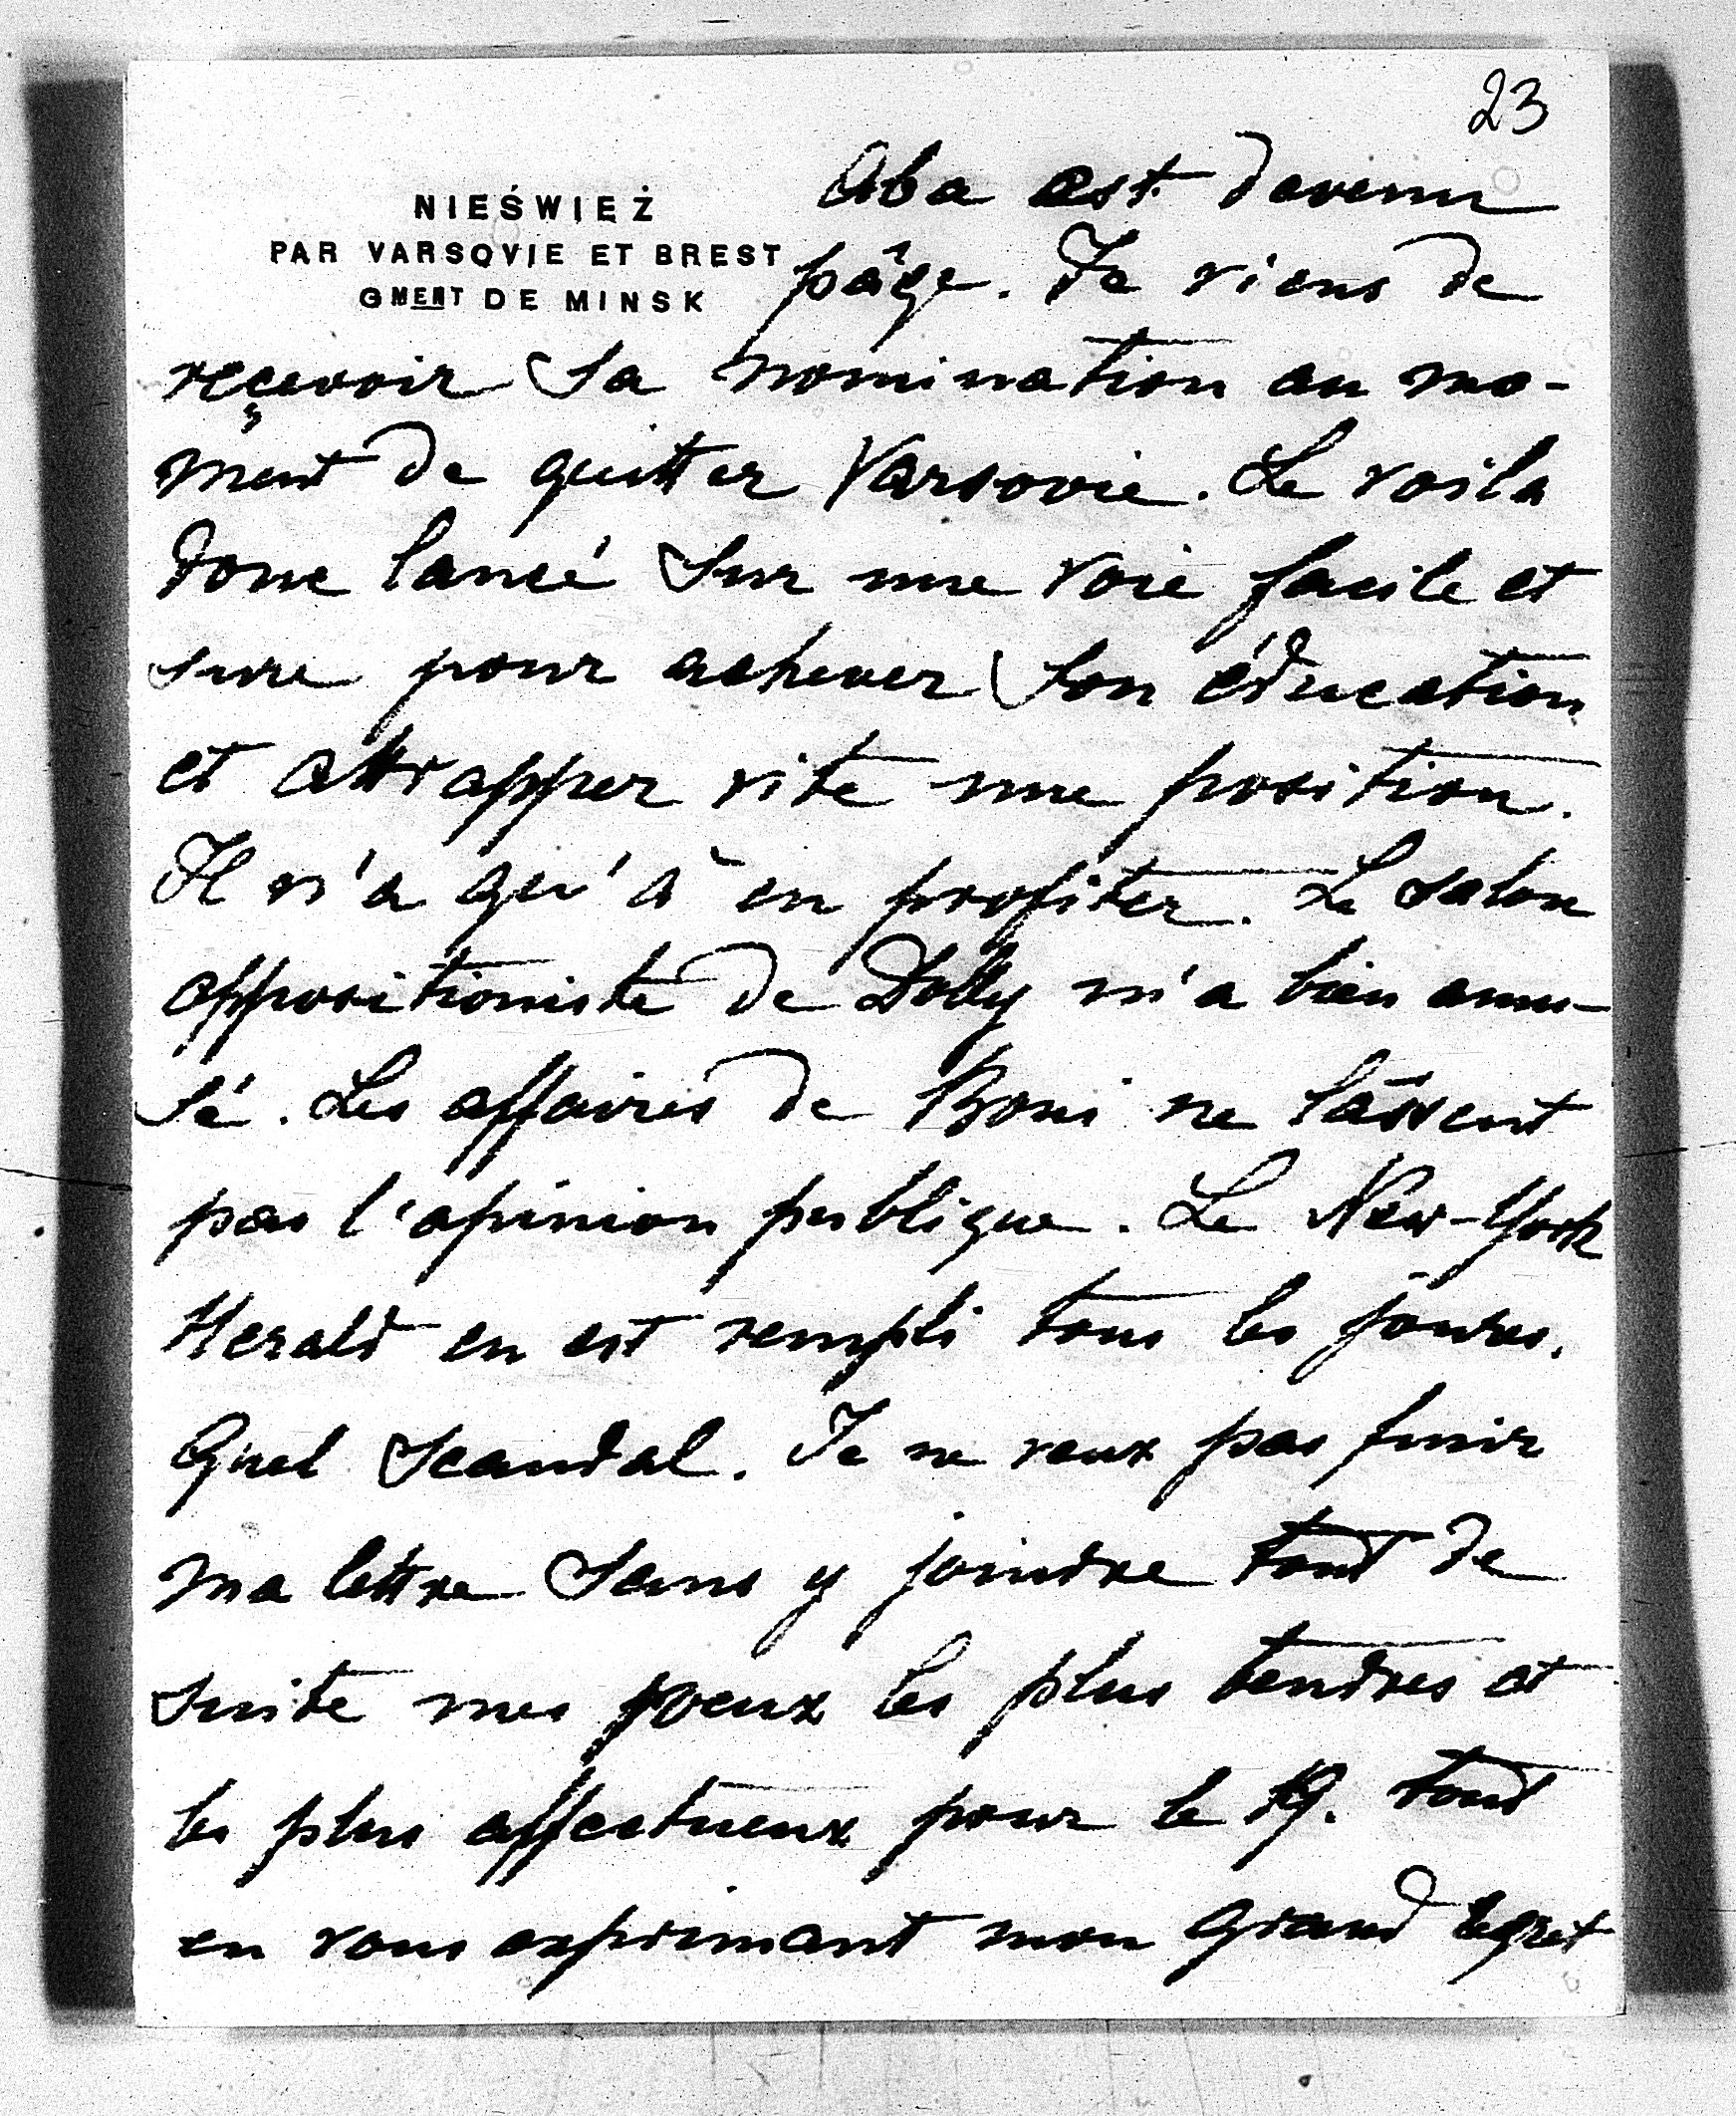 23
NIEŚWIEŻ
PAR VARSOVIE ET BREST
GMENT DE MINSK
Aba est devenu
pâge. Je viens de
reçevoir sa nomination au mo-
ment de quitter Varsovie. Le voila
donc lancé sur une voie facile et
sure pour achever son éducation
et attrapper vite une position.
Il n'a qu'à en profiter. Le salon
oppositioniste de Dolly m'a bien amu-
sé. Les affaires de Boni ne lâssent
pas l'opinion publique. Le New-York
Herald en est rempli tous les jours.
Quel scandal. Je ne veux pas finir
ma lettre sans y joindre tout de
suite mes voeux les plus tendres et
les plus affectueux pour le 19. tout
en vous exprimant mon grand regret